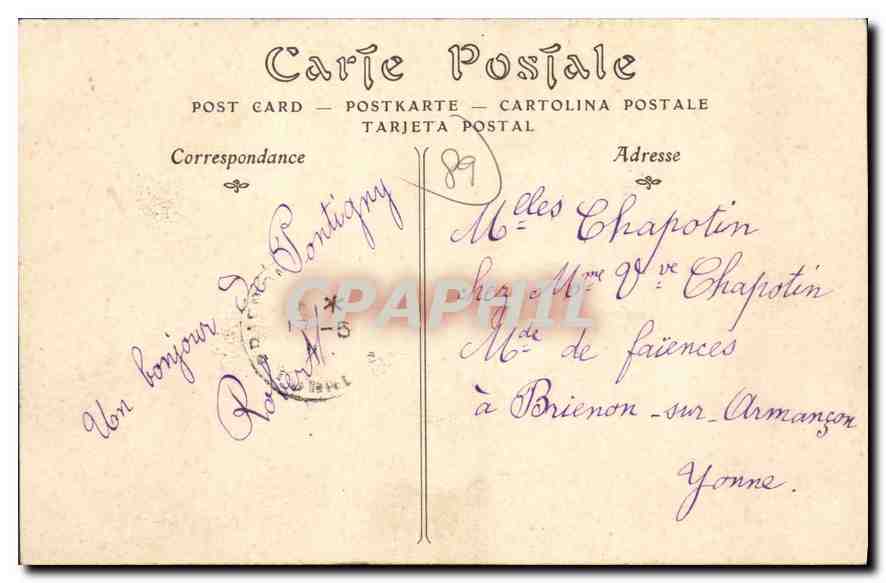 Carte Postale
POST CARD — POSTKARTE — CARTOLINA POSTALE
TARJETA POSTAL
Correspondance
Adresse
89
Un bonjour de Pontigny
Robert
Melles Chapotin
chez Mme Vve Chapotin
Mde de faïences
à Brienon-sur-Armançon
Yonne.
CPAPHIL